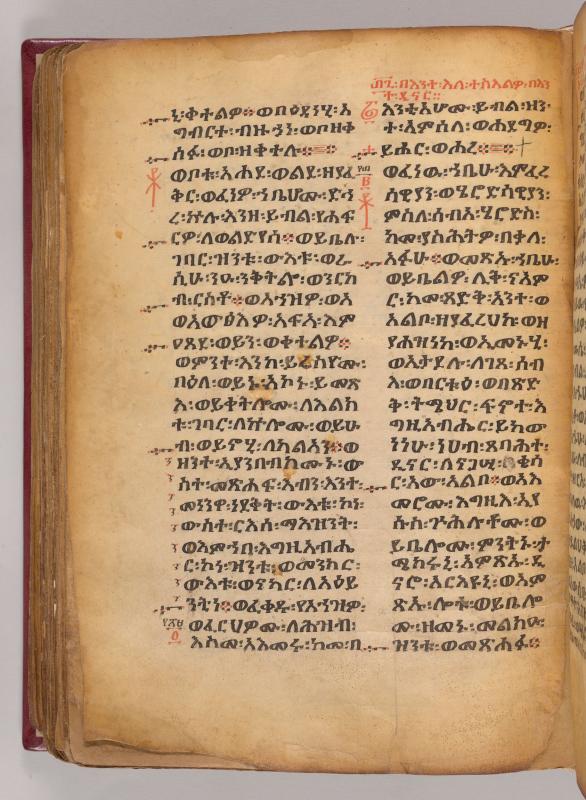 ኒ፡ቀተልዎ፨ወበፅጀንሂ፡አ
ግብርተ፡ብዙኃነ፡ወቦ፡ዘቀ
ሰፉ፡ወቦ፡ዘቀተሉ፨
ወቦቱ፡አሐደ፡ወልደ፡ዘያፈ
ቅር፡ወፈነዎ፡ኀቤሆሙ፡ድኅ
ረ፡ኵሉ፡እንዘ፡ይብል፡የሐፍ
ርዎ፡ለወልድየሰ፨ወይቤሉ፡
ገባር፡ዝንቱ፡ውእቱ፡ወራ
ሲሁ፡ንዑ፡ንቅትሎ፡ወንርከ
ብ፡ርስቶ፨ወእኅዝዎ፡ወአ
ውፅእዎ፡አፍአ፡እም
ዐጸደ፡ወይን፡ወቀተልዎ፨
ወምንተ፡እንከ፡ይሬስዮሙ፡
በዕለ፡ወይኑ፡አኮኑ፡ይመጽ
እ፡ወይቀትሎሙ፡ለእልክ
ቱ፡ገባር፡ለኵሎሙ፡ወይሁ
ብ፡ወይኖሂ፡ለካልኣን፨ወ
ዝንተ፡አያንበብክሙኑ፡ው
ስተ፡መጽሐፍ፡እብን፡እንተ፡
መነንዋ፡ነደቅት፡ውእቱ፡ኮነ፡
ውስተ፡ርእሰ፡ማእዝንት፡
ወእምኀበ፡እግዚአብሔ
ር፡ኮነ፡ዝንቱ፡ወመንክር፡
ውእቱ፡ወነኪር፡ለአዕይ
ንቲነ፨ወፈቀዱ፡የአኀዝዎ፡
ወፈርህዎሙ፡ለሕዝብ፡
እስመ፡አእመሩ፡ከመ፡በ
በእንተ፡እለ፡ተስእልዎ፡በእን
ተ፡ዲናር፡፡
እንቲአሆሙ፡ይብል፡ዝን
ተ፡አምሰለ፡ወሐደግዎ፡
ይሐር፡ወሐረ፨
ወፈነው፡ኀቤሁ፡እምፈሪ
ሳዊያን፡ወሄሮድሳዊያን፡
ምስለ፡ሰብአ፡ሄሮድስ፡
ከመ፡ያስሕትዎ፡በቃለ፡
አፉሁ፨ወመጽኡ፡ኀቤሁ፡
ወይቤልዎ፡ሊቅ፡ናአም
ር፡ከመ፡ጻድቅ፡አንተ፡ወ
አልቦ፡ዘያፈርሀከ፡ወዘ
የሐዝነከ፡ወኢመኑሂ፡
ወኢታደሉ፡ለገጸ፡ሰብ
እ፡ወበርቱዕ፡ወበጽድ
ቅ፡ትሜህር፡ፍኖተ፡እ
ግዚአብሔር፡ይከው
ነነሁ፡ነሀብ፡ጸባሕተ፡
ዲናር፡ለነጋሢ፡ቄሳ
ር፡አው፡አልቦ፨ወአእ
መሮሙ፡እግዚእ፡ኢየ
ሱስ፡ጕሕሉቶሙ፡ወ
ይቤሎሙ፡ምንትኑ፡ታ
ሜክሩኒ፡አምጽኡ፡ዲ
ናሮ፡አርእዩኒ፡ወአም
ጽኡ፡ሎቱ፡ወይቤሎ
ሙ፡ዘመኑ፡መልክዑ፡
ዝንቱ፡ወመጽሐፉ፨